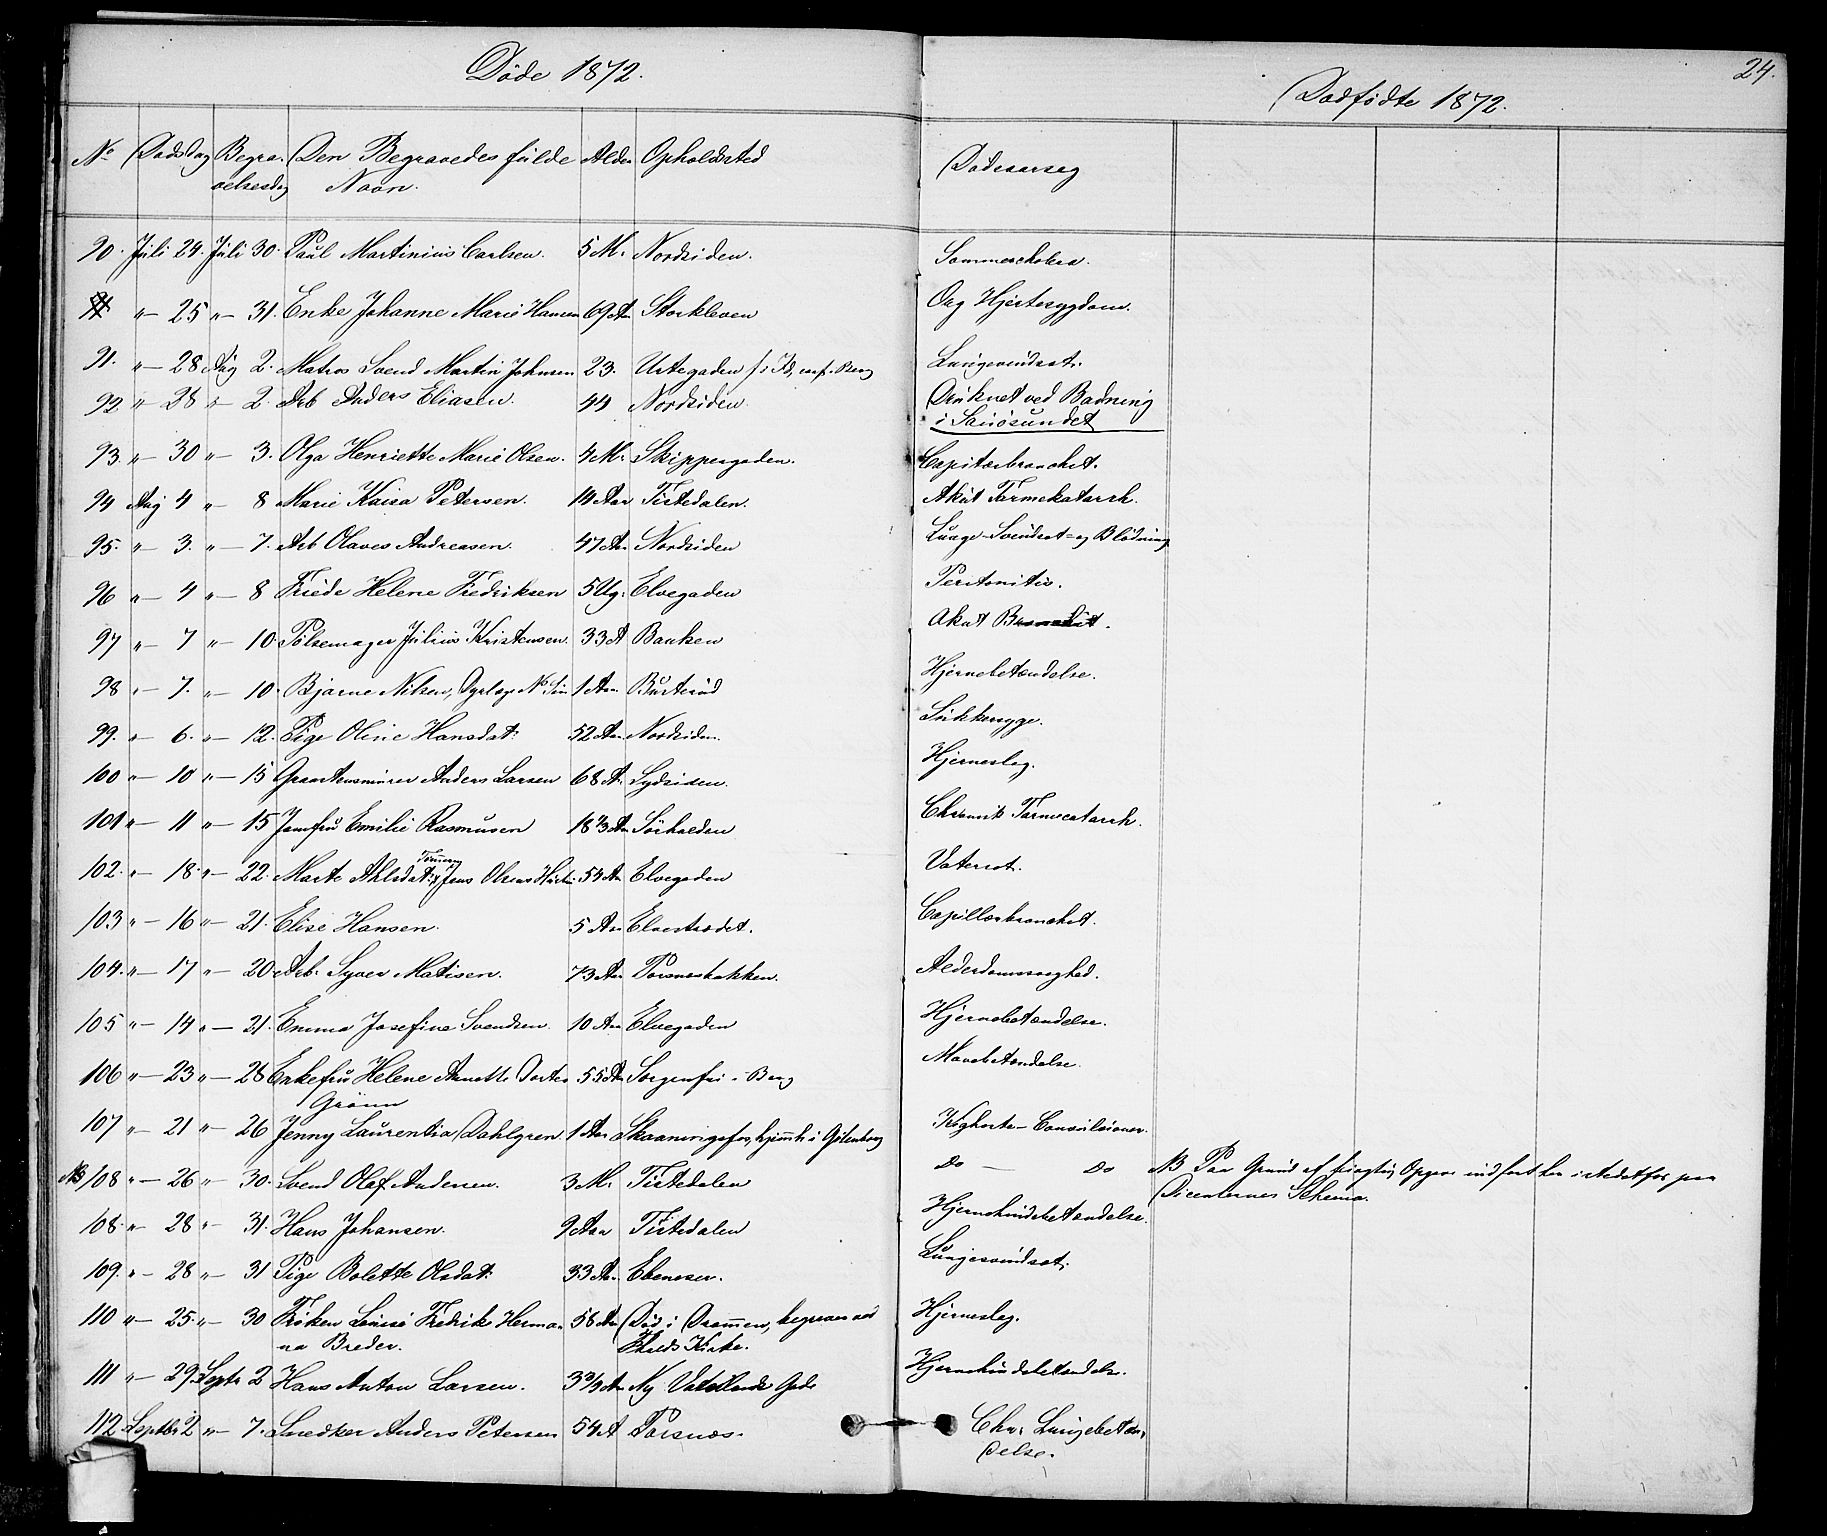 Døde 1872.
24.
Dødfødte 1872.
No Dødsdag Begra- Den Begravedes fulde Alder Opholdsted Dødsaarsag
velsesdag Navn.
90. Juli 24. Juli 30. Paul Martinius Carlsen. 5 M. Nordsiden. Sommercholera.
" 25 " 31. Enke Johanne Marie Hansen 69 Aar Storkleven Org Hjertesygdom.
91. " 28 Aug 2. Matros Svend Martin Johnsen 23. Urtegaden Lungesvindsot.
92 " 28 " 2. Arb Anders Eliasen. 44 Nordsiden. Druknet ved Badning
i Sauøsundet
93. " 30 " 3. Olga Henriette Marie Olsen. 4 M. Skippergaden. Capilærbronchit.
94 Aug 4 " 8 Marie Kaisa Petersen. 14 Aar Tistedalen. Akut Tarmekatarrh.
95. " 3. " 7. Arb Olaves Andreasen. 47 Aar Nordsiden Lunge-Svindsot og Blødning
96 " 4 " 8 Friede Helene Fredriksen 5 Ug. Elvegaden Peritonitis.
97 " 7 " 10. Pølsemager Julius Kristensen. 33 A Banken Akut Bronchit.
98 " 7. " 10. Bjarne Nilsen, 1 Aar Busterød Hjernebetændelse.
99. " 6. " 12. Pige Oline Hansdat: 52 Aar Nordsiden. Sukkersyge.
100 " 10 " 15 Graastensmurer Anders Larsen 68 A. Sydsiden. Hjerneslag.
101 " 11 " 15 Jomfru Emilie Rasmusen 18 2/3 Aar Sørhalden Chronisk Tarmecatarrh.
102. " 18. " 22. Marte Ahlsdat: Jens Olsens Hustru 54 Aar Elvegaden Vatersot.
103 " 16 " 21. Elise Hansen. 5 Aar Elvestrædet. Capillærbronchit.
104. " 17 " 20 Arb. Syver Matisen. 73 Aar Torsnesbakken. Alderdomssvaghed.
105 " 14 " 21. Emma Josefine Svendsen. 10 Aar Elvegaden Hjernebetændelse.
106 " 23 " 28 Enkefru Helene Annette 55 Aar Sorgenfri i Berg Mavebetændelse.
Grønn
107 " 21 " 26 Jenny Laurentia Dahlgren. 1 Aar Skaaningsfos, hjemh. i Gøteborg Kighoste- Convulsioner.
NB 108 " 26 " 30. Svend Olaf Andersen. 3 M. Tistedalen Do — Do NB Paa Grund af Opgave indført her istedetfor paa
Dicenternes Schema.
108. " 28 " 31. Hans Johansen. 9 Aar Tistedalen Hjernehindebetændelse.
109. " 28 " 31 Pige Bolette Olsdat: 33 Aar Ebeneser. Lungesvindsot.
110 " 25. " 30 Frøken Louise Fredrike Herma- 58 Aar Død i Dramen, begraves ved Hjerneslag.
na Breder. Kirke.
111 " 29. Septr 2 Hans Anton Larsen. 3 3/4 Aar Ny Gade Hjernehindebetændelse.
112 Septbr 2 " 7. Snedker Anders Petersen 54 A Torsnæs. Chr. Lungebetæn-
delse.